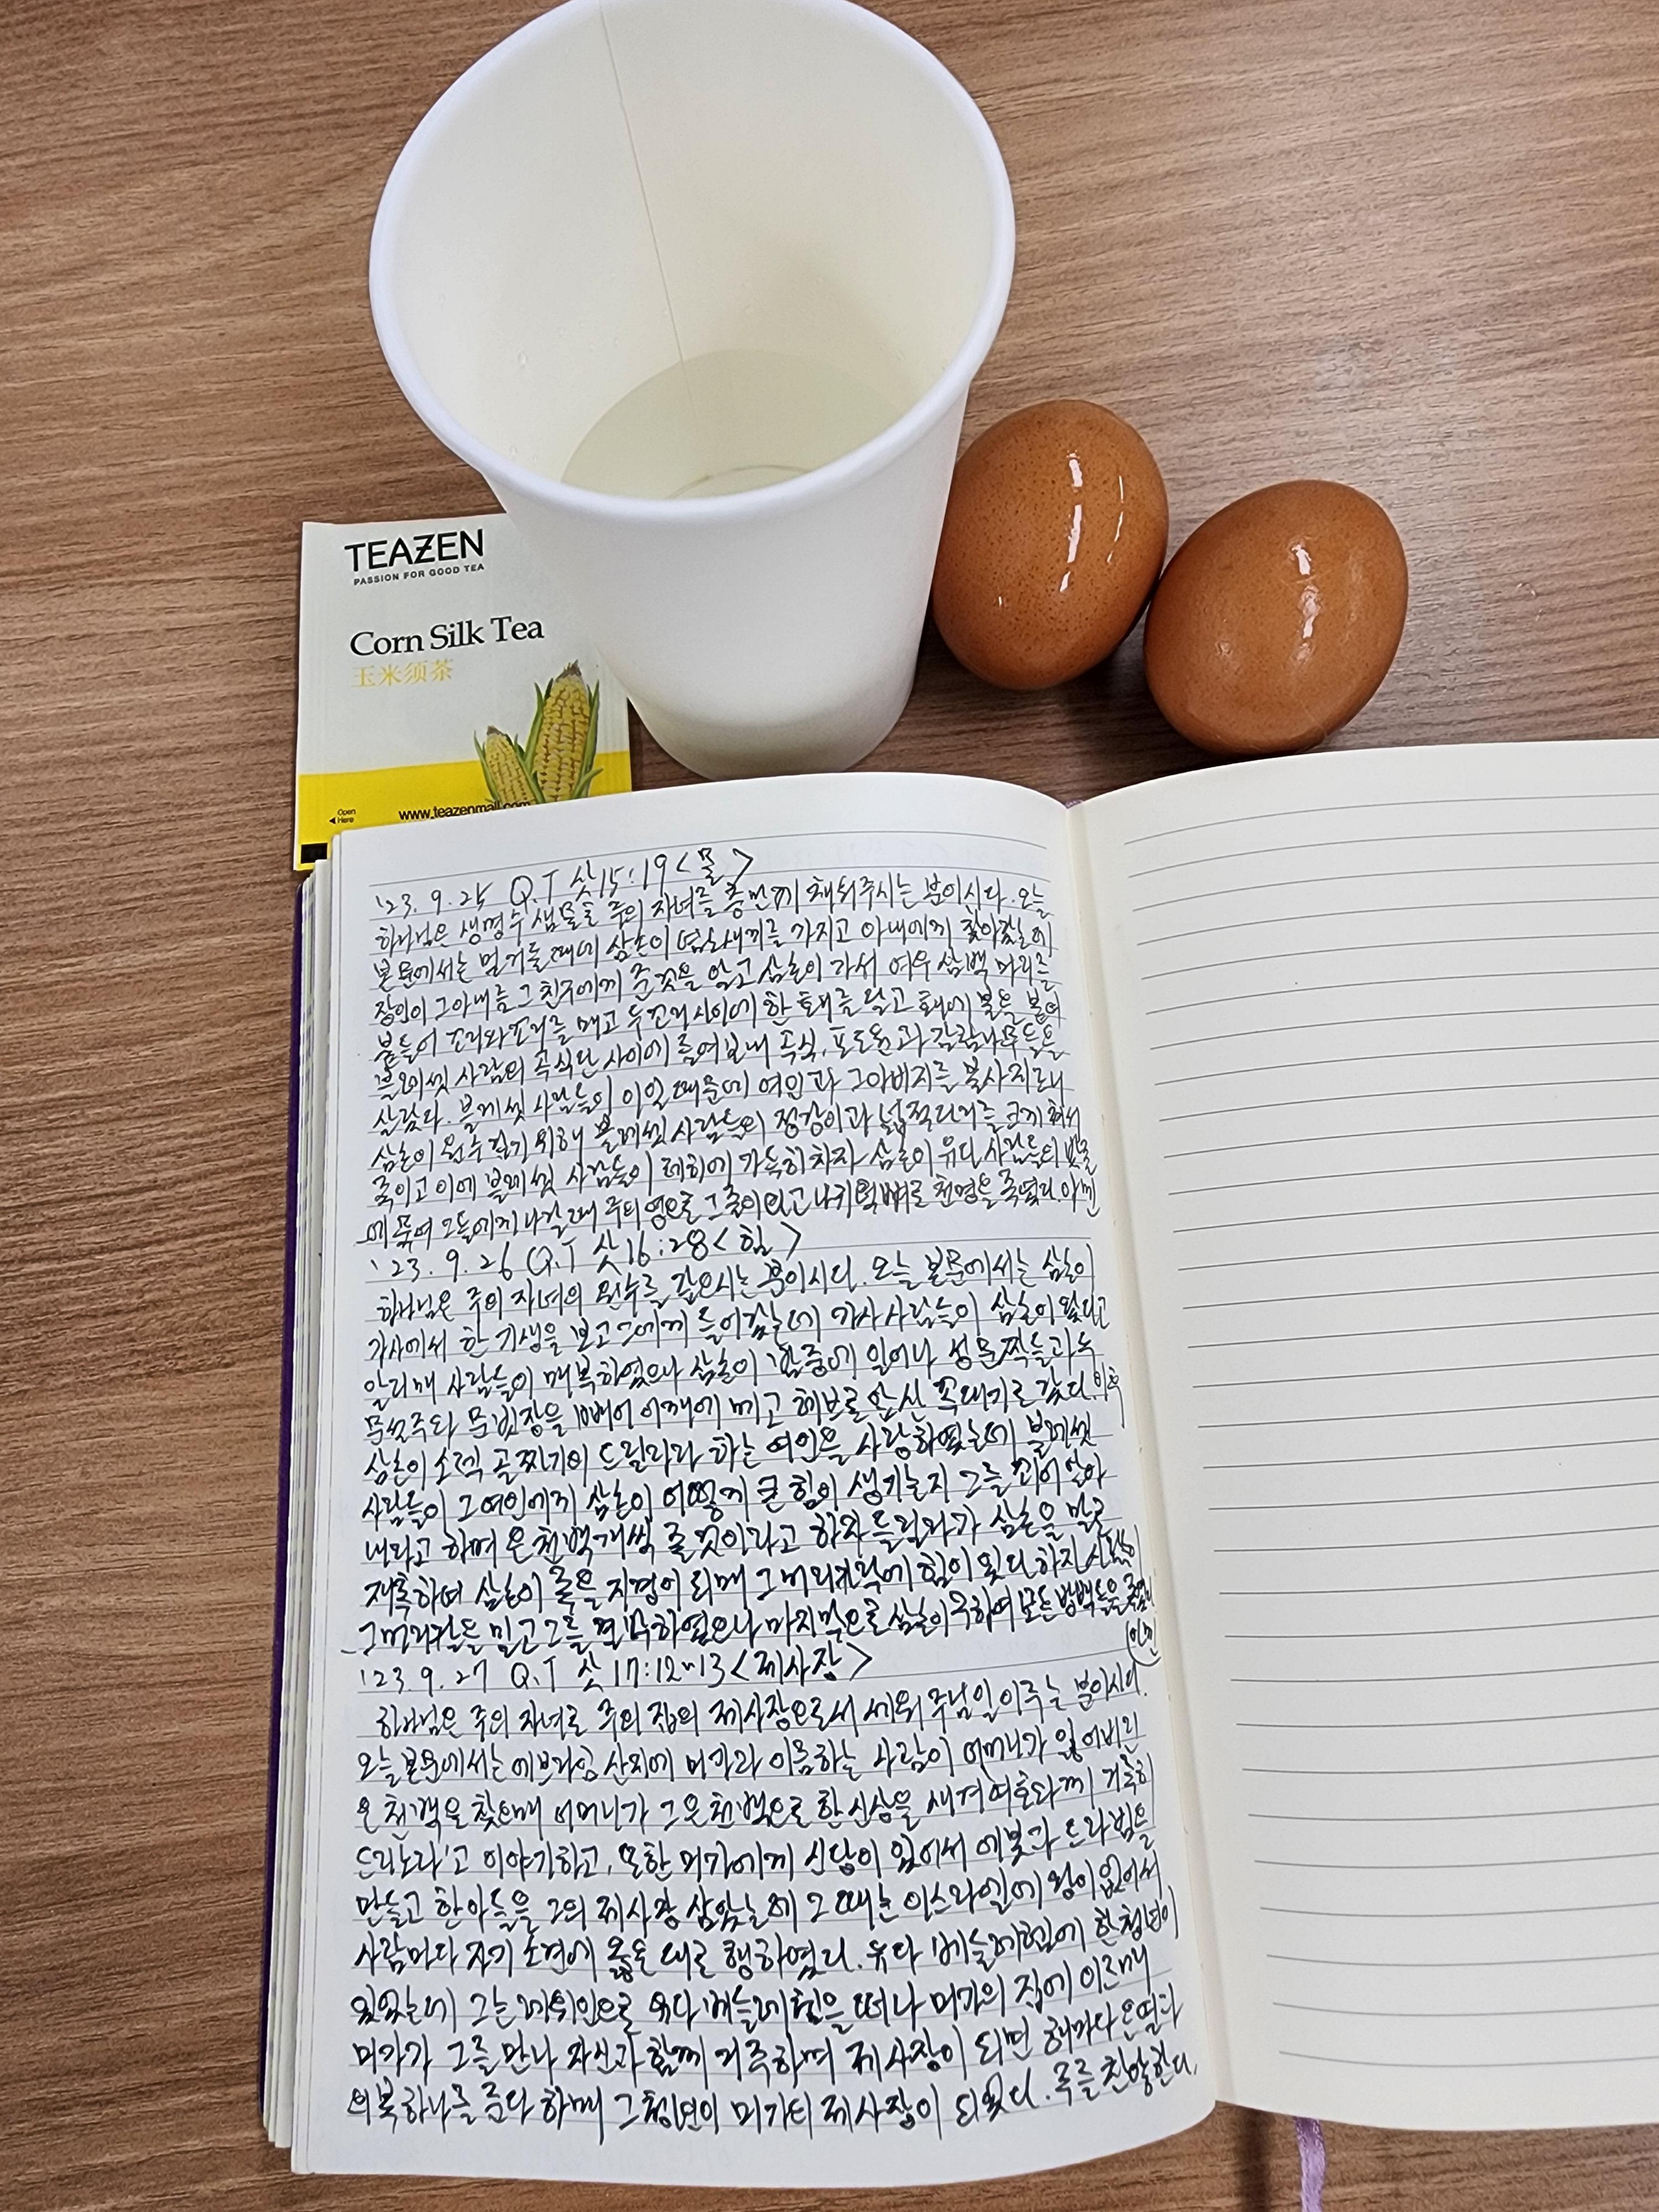 TEAZEN
PASSION FOR GOOD TEA
Corn Silk Tea
玉米须茶
Open
Here
www.teazenmall.com
'23. 9. 25 Q.T 삿15:19 <물>
하나님은 생명수 샘물로 주의 자녀를 충만케 채워주시는 분이시다. 오늘
본문에서는 밀 거둘 때에 삼손이 염소새끼를 가지고 아내에게 찾아갔는데
장인이 그 아내를 그 친구에게 준 것을 알고 삼손이 가서 여우 삼백 마리를
붙들어 꼬리와 꼬리를 매고 두 꼬리 사이에 한 홰를 달고 홰에 불을 붙여
블레셋 사람의 곡식단 사이에 들여보내 곡식, 포도원과 감람나무들을
살랐다. 블레셋 사람들이 이 일 때문에 여인과 그 아버지를 불사지르니
삼손이 원수 갚기 위해 블레셋 사람들의 정강이과 넓적다리를 크게 쳐서
죽이고 이에 블레셋 사람들이 레히에 가득히 차자 삼손이 유다 사람들의 밧줄
에 묶여 그들에게 나갈 때 주의 영으로 그 줄이 끊고 나귀 턱뼈로 천명을 죽였다. 아멘
'23. 9. 26 Q.T 삿16:28 <힘>
하나님은 주의 자녀의 원수를 갚으시는 분이시다. 오늘 본문에서는 삼손이
가사에서 한 기생을 보고 그에게 들어갔는데 가사 사람들이 삼손이 왔다고
알리매 사람들이 매복하였으나 삼손이 밤중에 일어나 성 문짝들과 두
문설주와 문빗장을 빼어 어깨에 메고 헤브론 앞산 꼭대기로 갔다. 이후
삼손이 소렉 골짜기의 드릴라라 하는 여인을 사랑하였는데 블레셋
사람들이 그 여인에게 삼손이 어떻게 큰 힘이 생기는지 그를 꾀어 알아
내라고 하며 은 천백개씩 줄 것이라고 하자 들릴라가 삼손을 말로
재촉하여 삼손이 죽을 지경이 되매 그 머리카락에 힘이 있다 하자
그 머리카락을 밀고 그를 결박하였으나 마지막으로 삼손이 구하여 모든 방백들을 죽였다
아멘
'23. 9. 27 Q.T 삿 17:12~13 <제사장>
하나님은 주의 자녀로 주의 집의 제사장으로서 세워 주님 일 이루는 분이시다.
오늘 본문에서는 에브라임 산지에 미가라 이름하는 사람이 어머니가 잃어버린
은 천백을 찾으매 어머니가 그 은 천백으로 한 신상을 새겨 여호와께 거룩히
드리노라'고 이야기하고, 또한 미가에게 신당이 있어서 에봇과 드라빔을
만들고 한 아들을 그의 제사장 삼았는데 그 때는 이스라엘에 왕이 없어서
사람마다 자기 소견에 옳은 대로 행하였다. 유다 베들레헴에 한 청년이
있었는데 그는 레위인으로 유다 베들레헴을 떠나 미가의 집에 이르매
미가가 그를 만나 자신과 함께 거주하며 제사장이 되면 해마다 은 열과
의복 하나를 준다 하매 그 청년이 미가의 제사장이 되었다. 주를 찬양한다.